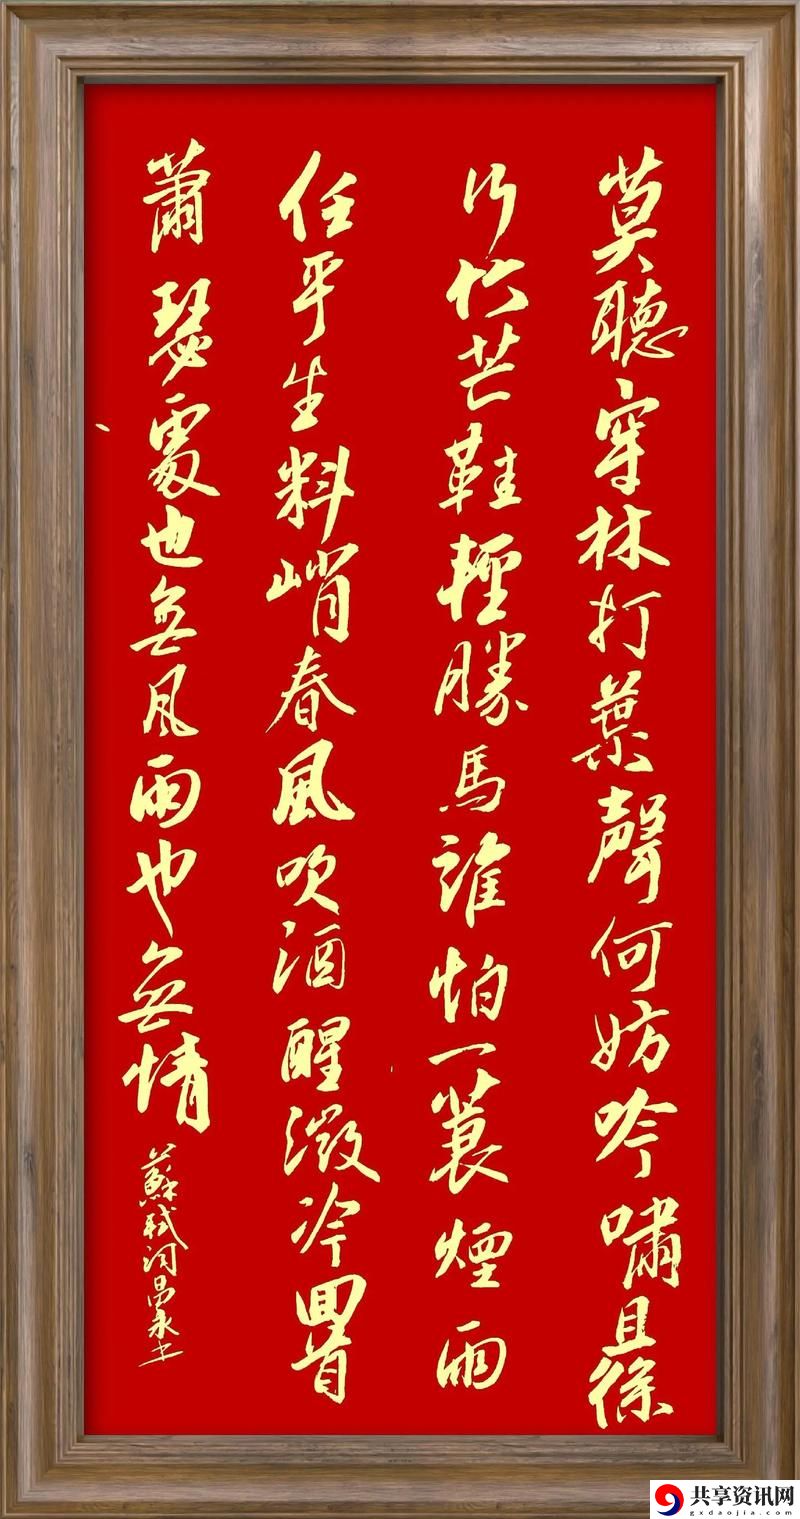 莫聽穿林打葉聲何妨吟嘯且徐
行竹芒鞋輕勝馬誰怕一蓑煙雨
任平生料峭春風吹酒醒微冷回首
蕭瑟處也無風雨也無情
蘇軾詞昌永书
共享资讯网
gxdaojia.com